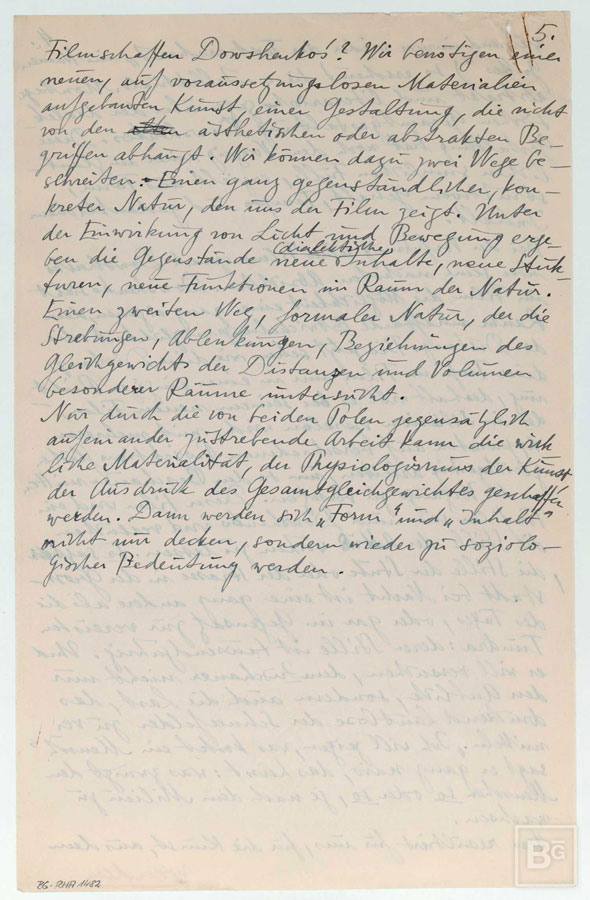 5.
Filmschaffen Dowshenkos? Wir benötigen einer
neuen, auf voraussetzungslosen Materialien
aufgebauten Kunst, einer Gestaltung, die nicht
von den alten ästhetischen oder abstrakten Be-
griffen abhängt. Wir können dazu zwei Wege be-
schreiten: Einen ganz gegenständlicher, kon-
kreter Natur, den uns der Film zeigt. Unter
der Einwirkung von Licht und Bewegung erge-
(dialektische)
ben die Gegenstände neue Inhalte, neue Stuk-
turen, neue Funktionen im Raum der Natur.
Einen zweiten Weg, formaler Natur, der die
Strebungen, Ablenkungen, Beziehungen des
Gleichgewichts der Distanzen und Volumen
besonderer Räume untersucht.
Nur durch die von beiden Polen gegensätzlich
aufeinander zustrebende Arbeit kann die wirk-
liche Materialität, der Physiologismus der Kunst
der Ausdruck des Gesamtgleichgewichtes geschaffen
werden. Dann werden sich „Form“ und „Inhalt“
nicht nur decken, sondern wieder zu soziolo-
gischer Bedeutung werden.
BG-RHA-1482
BG